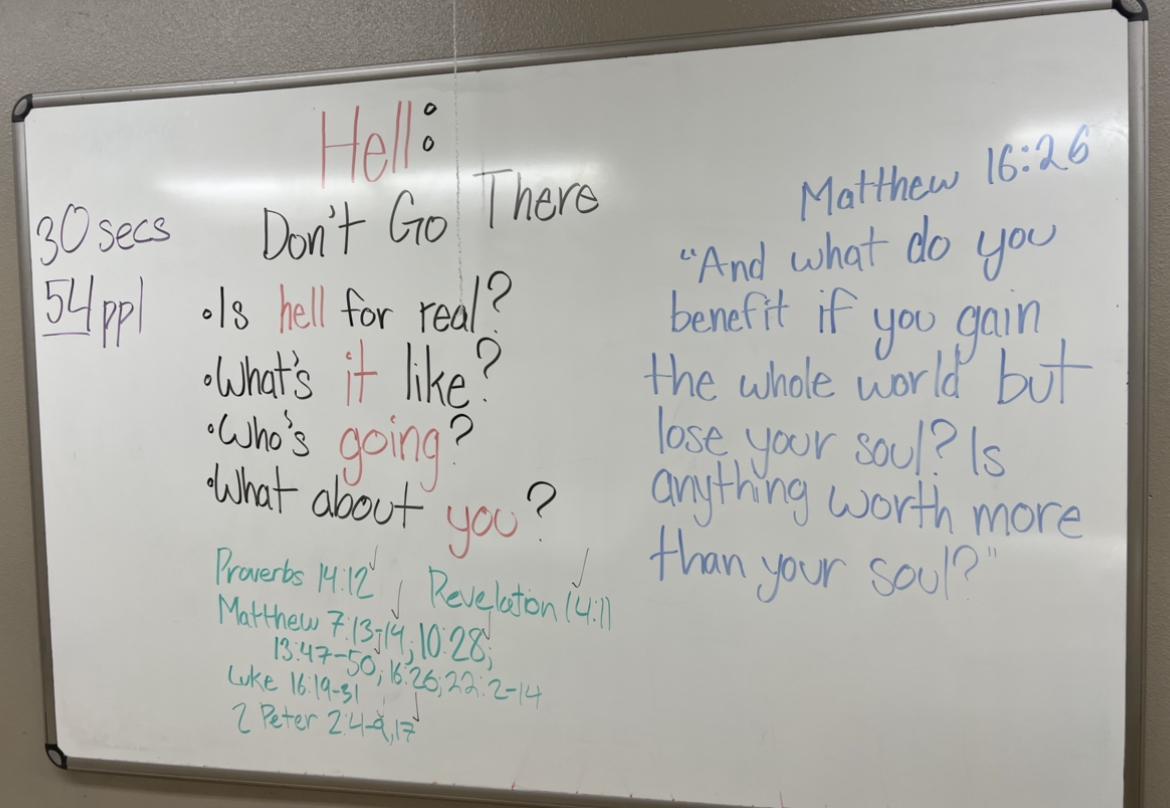 Hell:
Don't Go There
30 secs
54 ppl
•Is hell for real?
•What's it like?
•Who's going?
•What about you?
Proverbs 14:12
Revelation 14:11
Matthew 7:13-14; 10:28;
13:47-50; 16:26; 22:2-14
Luke 16:19-31
2 Peter 2:4-9,17
Matthew 16:26
"And what do you
benefit if you gain
the whole world but
lose your soul? Is
anything worth more
than your soul?"